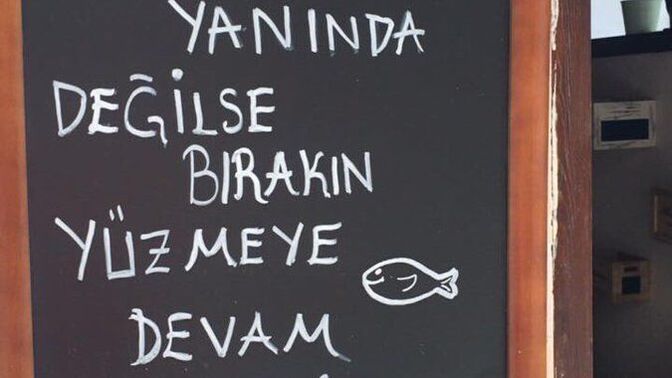 YANINDA
DEĞİLSE
BIRAKIN
YÜZMEYE
DEVAM